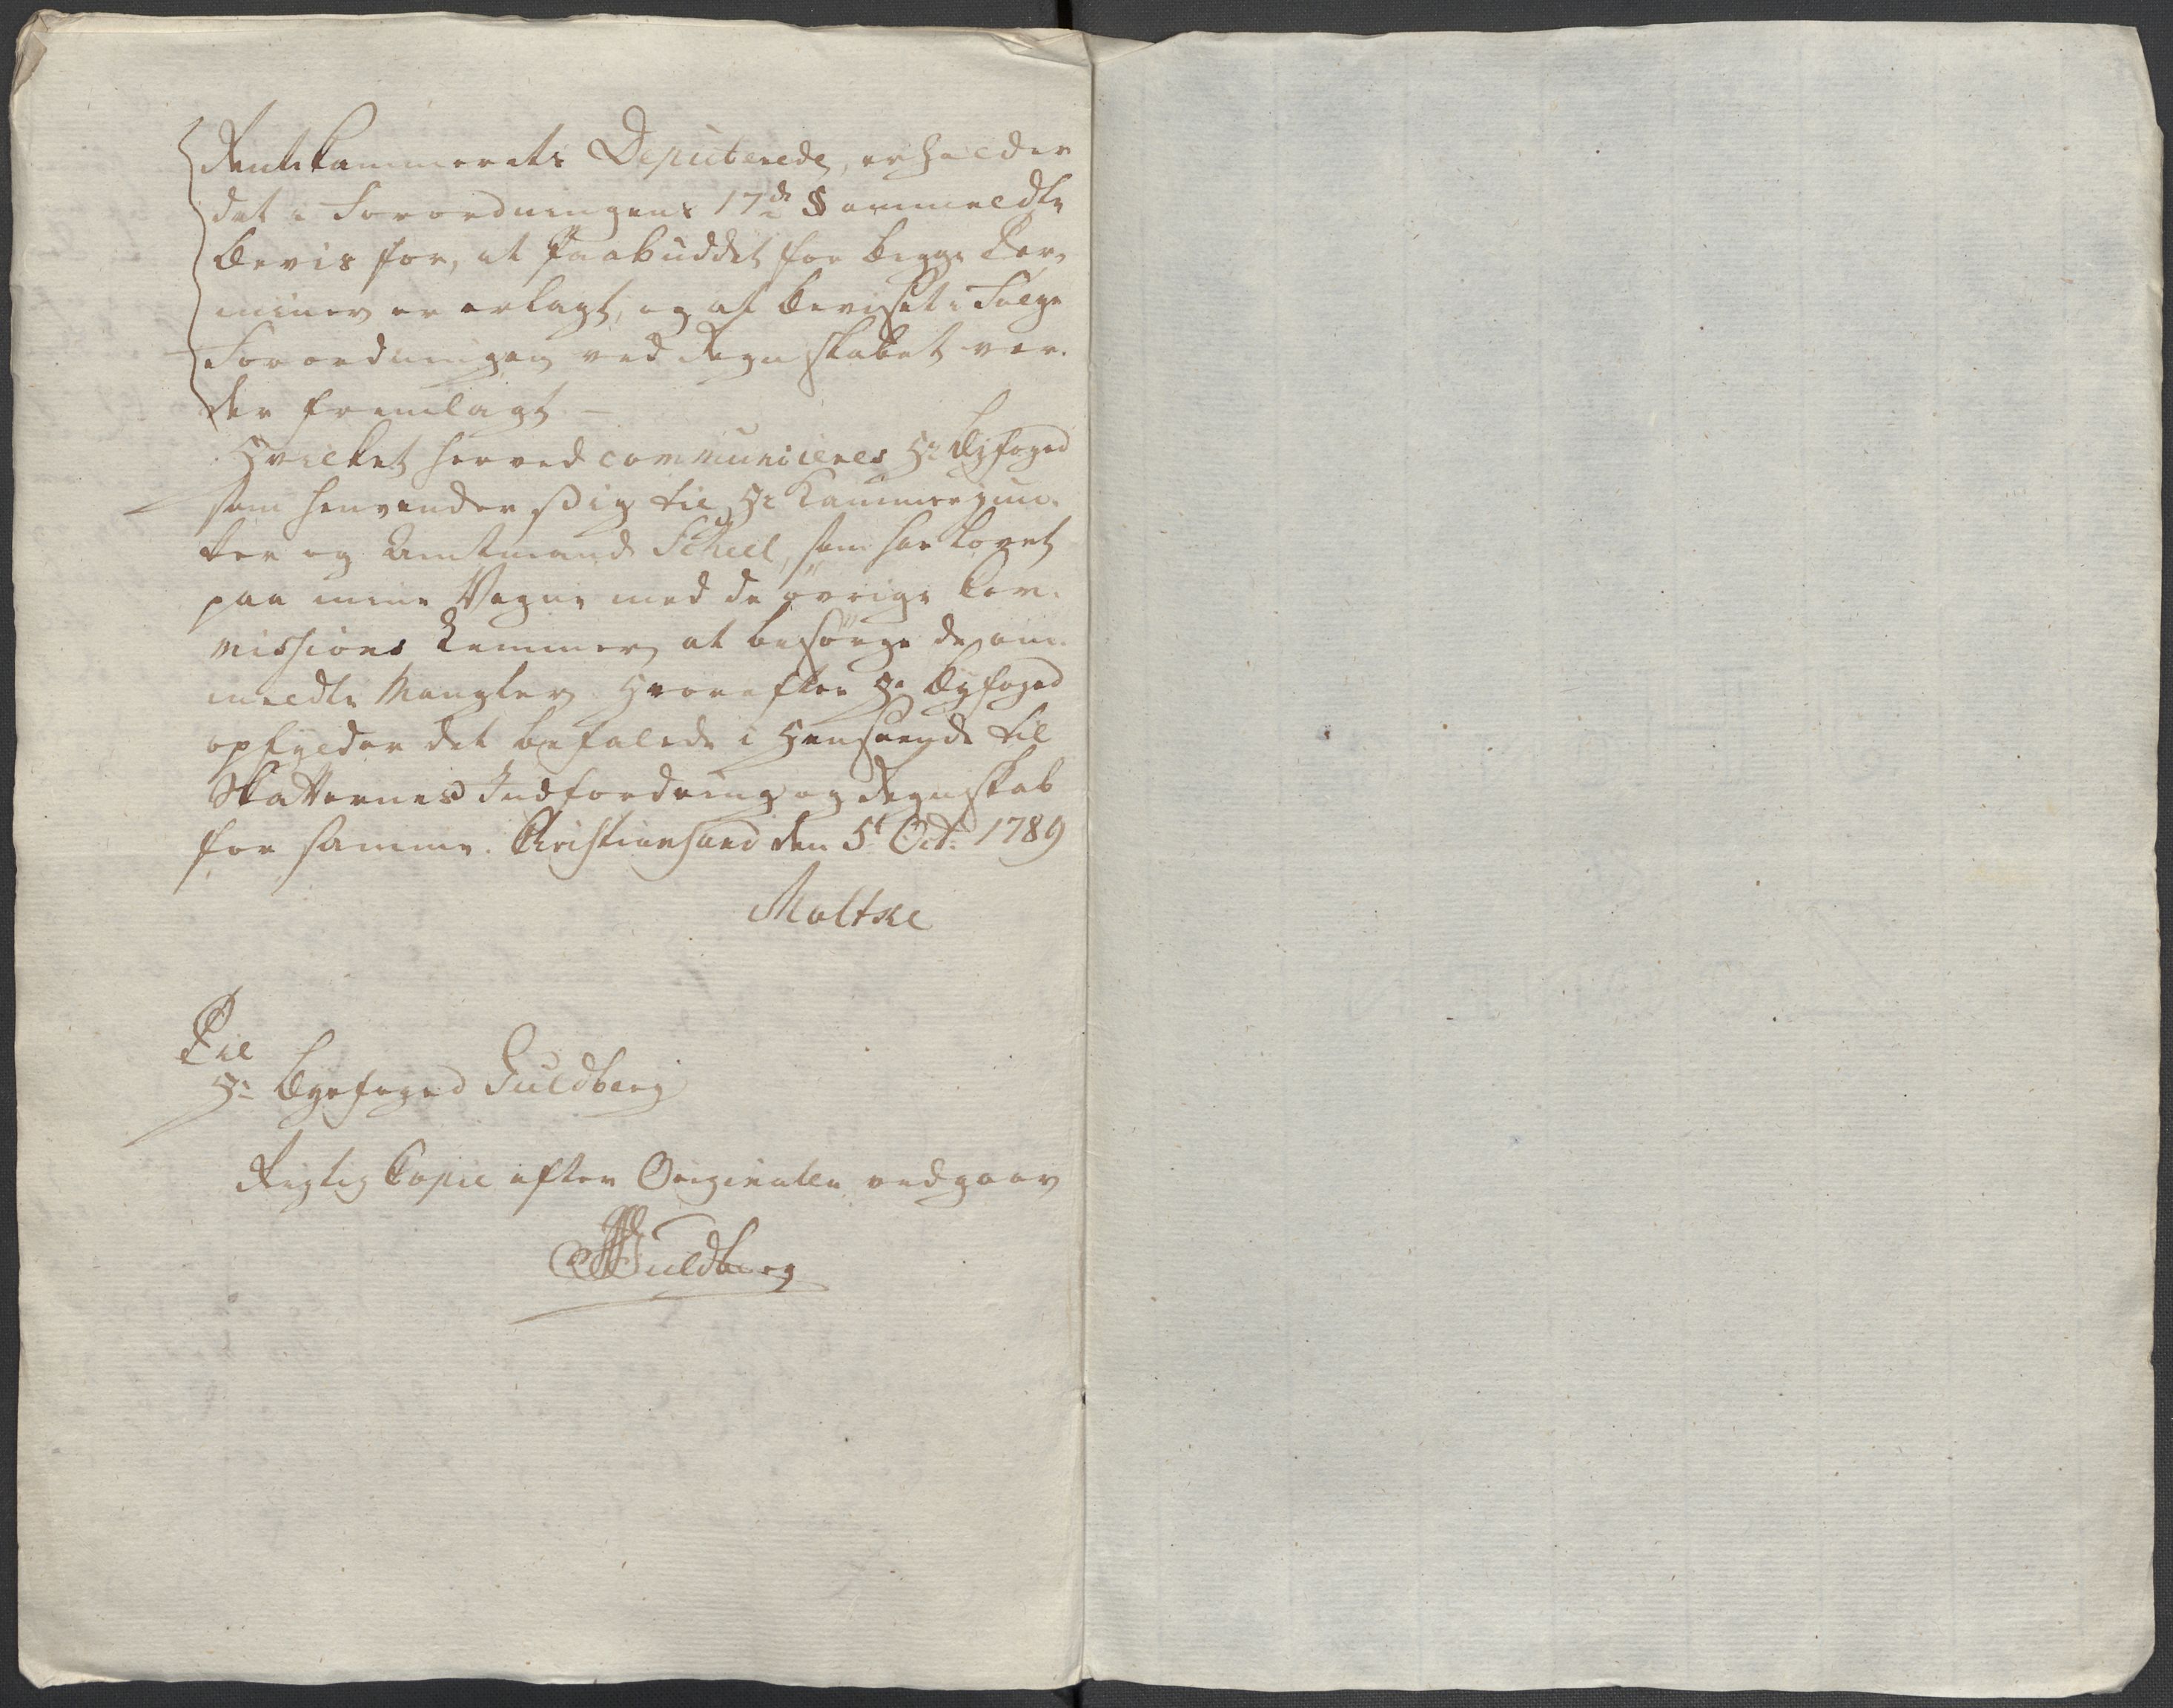 Rentekammerets Deputerede, erholder
det i Forordningens 17de § ommeldte
Bevis for, at Paabuddet for begge Ter-
miner er erlagt, og at Beviset i Følge
Forordningen ved Regnskabet vor-
der fremlagt. —
Hvilket herved communiceres Hr Byfoged
som henvender sig til Hr Kammerjun-
ker og Amtmand Scheel, som har lovet
paa mine Vegne med de øvrige Com-
missions Lemmer at besørge de om-
meldte Mangler. Hvorefter Hr Byfoged
opfylder det befalede i Henseende til
Skatternes Indfordring og Regnskab
for samme. Christiansand den 5t Oct: 1789
Moltke
Til
Hr Byefoged Guldberg
Rigtig Copie efter Originalen vedgaar
Guldberg